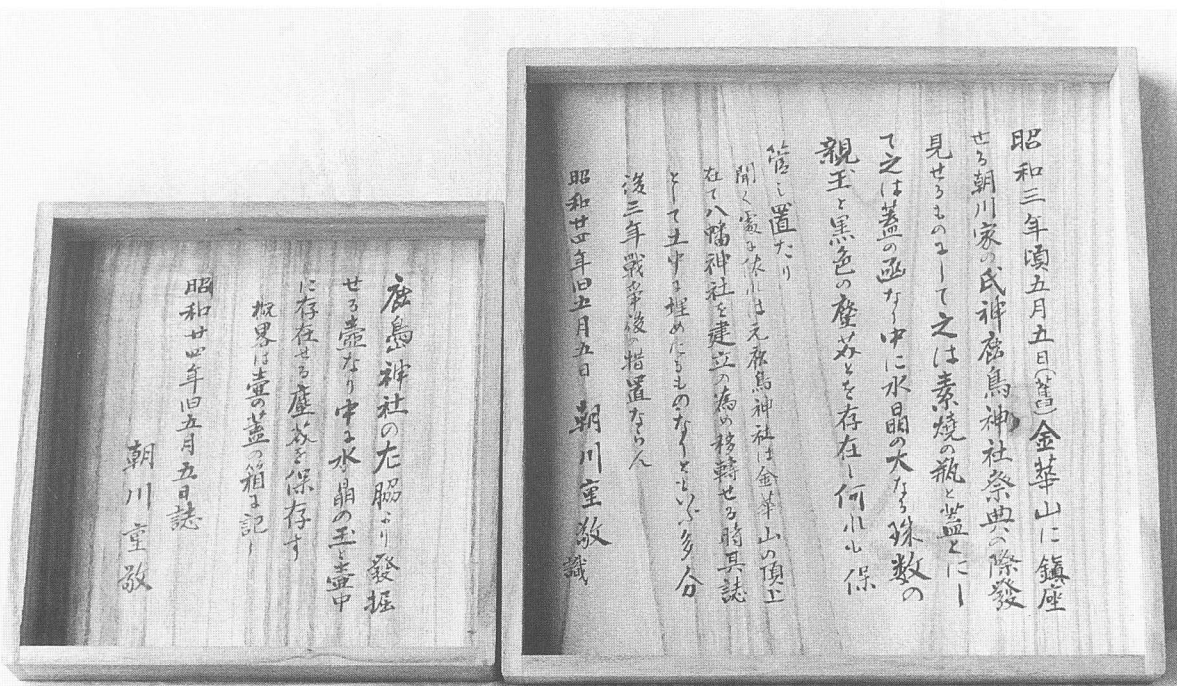 昭和三年頃五月五日(旧)金華山に鎮座
せる朝川家の氏神鹿島神社祭典の際發
見せるものにして之は素焼の瓶と蓋とにし
て之は蓋の函なり中に水晶の大なる珠数の
親玉と黒色の塵芥とを存在し何れも保
管し置たり
聞く處に依れは元鹿島神社は金華山の頂上
在て八幡神社を建立の為め移轉せる時其誌
として土中に埋めたるものなりといふ多分
後三年戰争後の措置ならん
昭和廿四年旧五月五日 朝川重敬 識
鹿島神社の左脇より發掘
せる壺なり中に水晶の玉と壷中
に存在せる塵芥を保存す
概畧は壷の蓋の箱に記し
昭和廿四年旧五月五日誌
朝川重敬